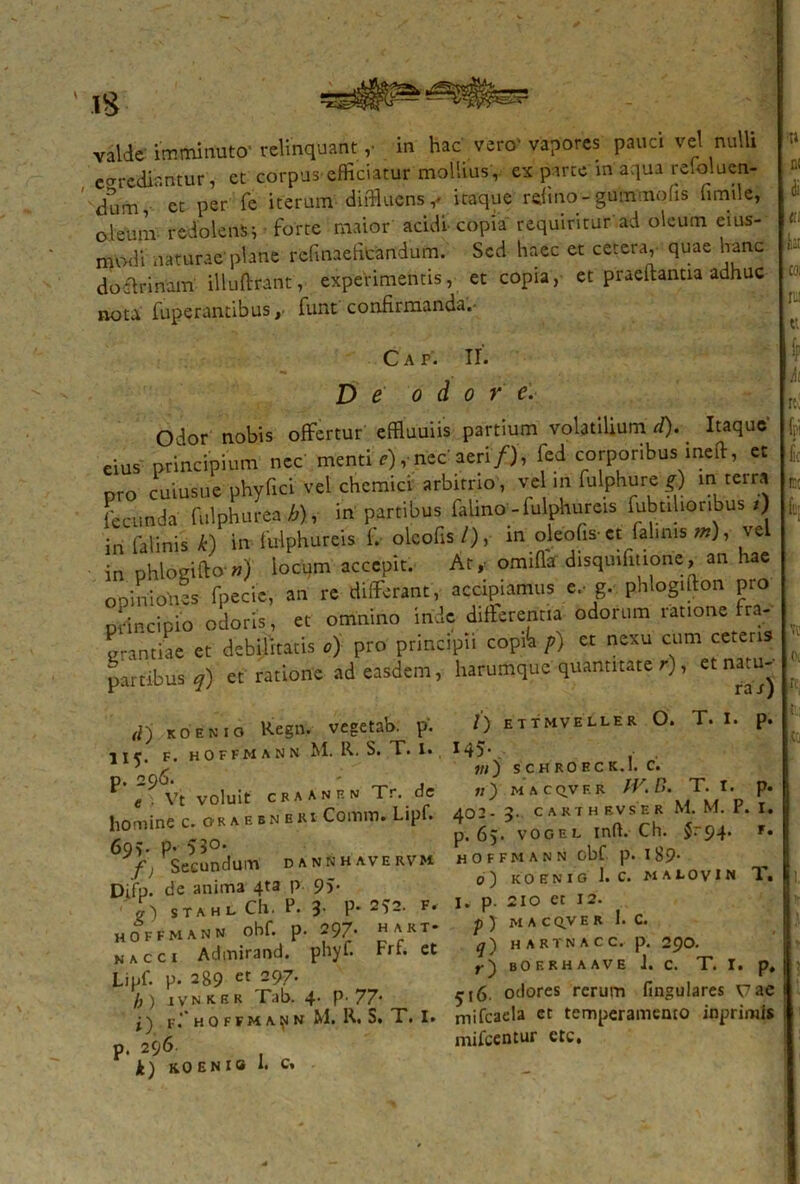 18
valde imminuto relinquant, in hac vero vapores pauci vel nulli
egrediantur, et corpus efficiatur mollius, ex parte in aqua resoluen-
dum, et per se iterum diffluens, itaque resino-gummosis simile,
oleum redolens; forte maior acidi copia requiritur ad oleum eius-
modi naturae plane resinaeficandum. Sed haec et cetera, quae hanc
doctrinam illustrant, experimentis, et copia, et praestantia adhuc
nota superantibus, sunt confirmanda.
CAP. II.
De odore.
Odor nobis offertur effluuiis partium volatilium d). Itaque
eius principium nec menti e), nec aeri f), sed corporibus inest, et
pro cuiusue physici vel chemici arbitrio, vel in sulphure g) in terra
secunda sulphurea h), in partibus salino-sulphureis subtilioribus i)
in salinis k) in sulphureis s. oleosis l), in oleosis et salinis m), vel
in phlogisto n) locum accepit. At, omissa disquisitione, an hae
opiniones specie, an re differant, accipiamus e. g. phlogiston pro
principio odoris, et omnino inde differentia odorum ratione fra-
grantiae et debilitatis o) pro principii copia p) et nexu cum ceteris
partibus q) et ratione ad easdem, harumque quantitate r), et natu-
ra s)
d) KOENIG Regn. vegetab. p.
115. F. HOFFMANN M. R. S. T. I.
p. 296.
e) Vt voluit CRAANEN Tr. de
homine c. GRAEBNERI Comm. Lips.
695. p. 530.
f) Secundum DANNHAVERVM
Disp. de anima 4ta p 95.
g) STAHL Ch. P. 3. p. 252. F.
HOFFMANN obs. p. 297. HART-
NACCI Admirand. phys. Frf. et
Lips. p. 289 et 297.
h) IVNKER Tab. 4. p. 77.
i) F. HOFFMANN M. R. S. T. I.
p. 296.
k) KOENIG l. c.
l) ETTMVELLER O. T. I. p.
145.
m) SCHROECK. l. c.
n) MACQVER W. B. T. I. p.
402. 3. CARTHEVSER M. M. P. I.
p. 65. VOGEL inst. Ch. §. 94. F.
HOFFMANN obs p. 189.
o) KOENIG l. c. MALOVIN T.
I. p. 210 et 12.
p) MACQVER l. c.
q) HARTNACC. p. 290.
r) BOERHAAVE l. c. T. I. p.
516. odores rerum singulares vae
miscaela et temperamento inprimis
miscentur etc.